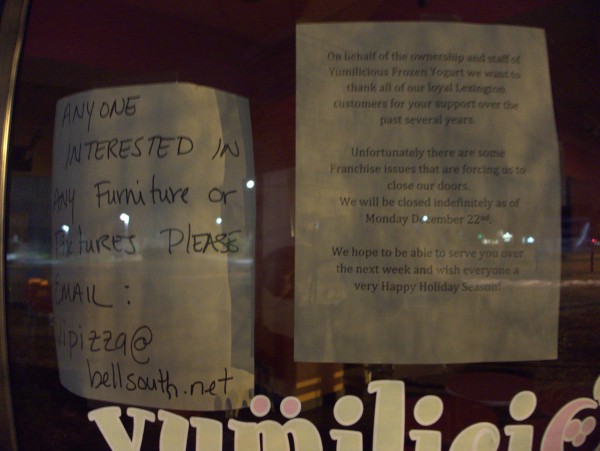 ANYONE
INTERESTED IN
ANY Furniture or
Fixtures PLEASE
EMAIL :
bellsouth.net
On behalf of the ownership and staff of
Yumilicious Frozen Yogurt we want to
thank all of our loyal Lexington
customers for your support over the
past several years.
Unfortunately there are some
Franchise issues that are forcing us to
close our doors.
We will be closed indefinitely as of
Monday December 22nd.
We hope to be able to serve you over
the next week and wish everyone a
very Happy Holiday Season!
yumilici